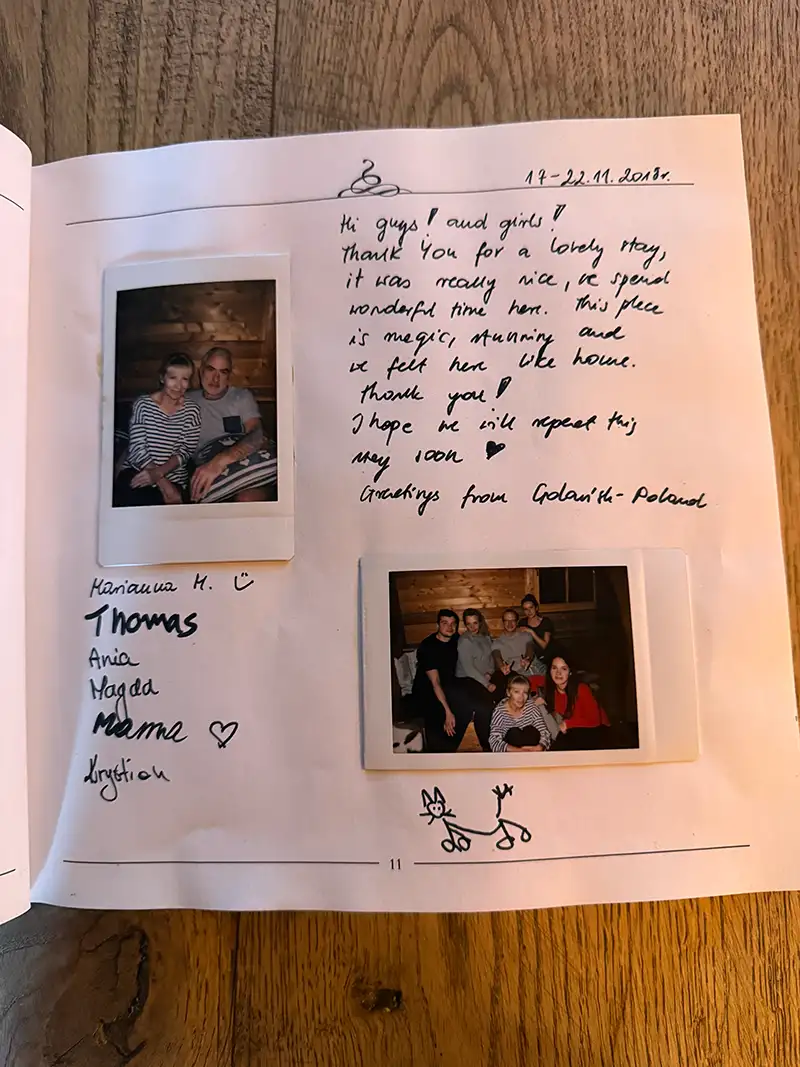 17-22.11.2018r.
Hi guys! and girls!
Thank You for a lovely stay,
it was really nice, we spend
wonderful time here. This place
is magic, stunning and
we felt here like home.
Thank you!
I hope we will repeat this
stay soon ♥
Greetings from Gdańsk-Poland
Marianna M. ☺
Thomas
Ania
Magda
Mamma ♡
Krystian
11